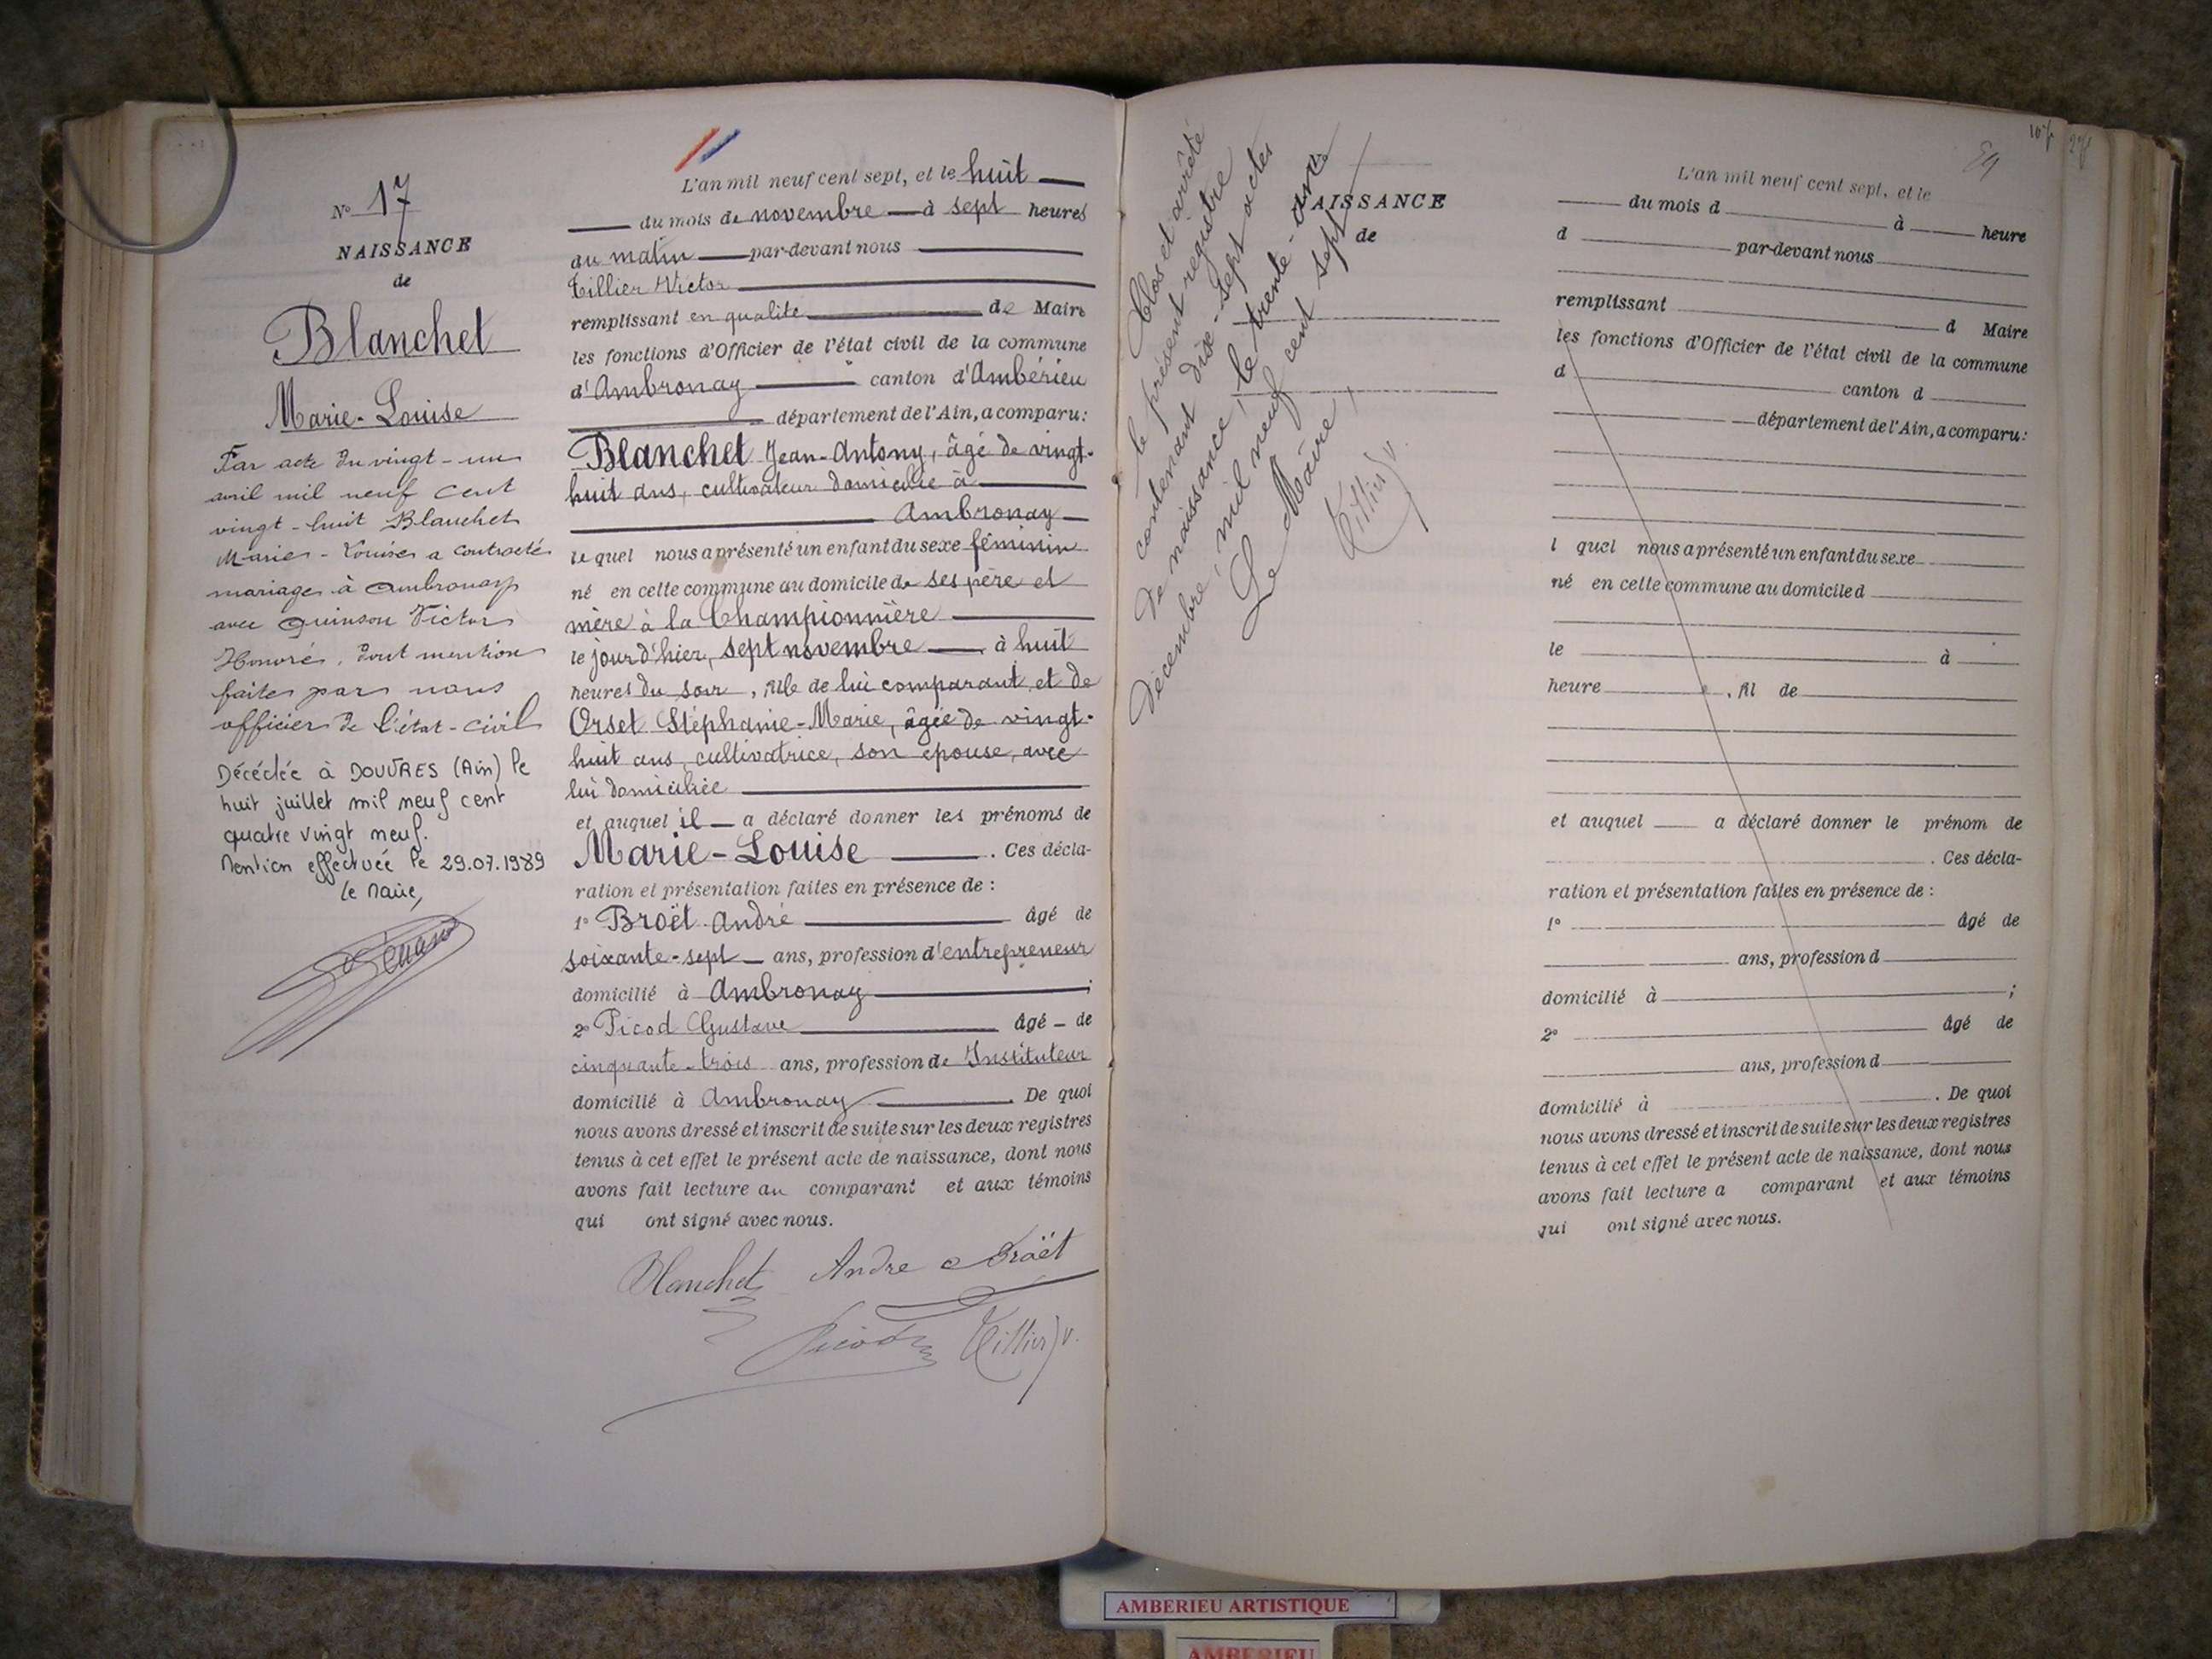 Nº 17
NAISSANCE
de
Blanchet
Marie-Louise
Par acte du vingt-un
avril mil neuf cent
vingt-huit Blanchet
Marie-Louise a contracté
mariage à Ambronay
avec Quinson Victor
Honoré, dont mention
faite par nous
officier de l'état-civil
Décédée à DOUVRES (Ain) le
huit juillet mil neuf cent
quatre vingt neuf.
Mention effectuée le 29.07.1989
Le Maire,
L'an mil neuf cent sept, et le huit
du mois de novembre à sept heures
du matin par-devant nous
Tillier Victor
remplissant en qualité de Maire
les fonctions d'Officier de l'état civil de la commune
d'Ambronay canton d'Ambérieu
département de l'Ain, a comparu:
Blanchet Jean-Antony, âgé de vingt-
huit ans, cultivateur domicilié à
Ambronay
le quel nous a présenté un enfant du sexe féminin
né en cette commune au domicile de ses père et
mère à la Championnière
le jour d'hier, sept novembre à huit
heures du soir, fille de lui comparant et de
Orset Stéphanie-Marie, âgée de vingt-
huit ans, cultivatrice, son épouse, avec
lui domiciliée
et auquel il a déclaré donner les prénoms de
Marie-Louise. Ces décla-
ration et présentation faites en présence de :
1º Broët André âgé de
soixante-sept ans, profession d'entrepreneur
domicilié à Ambronay;
2º Picod Gustave âgé de
cinquante-trois ans, profession de Instituteur
domicilié à Ambronay. De quoi
nous avons dressé et inscrit de suite sur les deux registres
tenus à cet effet le présent acte de naissance, dont nous
avons fait lecture au comparant et aux témoins
qui ont signé avec nous.
Blanchet André Broët
Picod Tillier V.
Clos et arrêté
le présent registre
contenant dix-sept actes
de naissance, le trente-un
décembre, mil neuf cent sept
Le Maire,
Tillier V.
NAISSANCE
de
107 27
89
L'an mil neuf cent sept, et le
du mois d à heure
d par-devant nous
remplissant d Maire
les fonctions d'Officier de l'état civil de la commune
d canton d
département de l'Ain, a comparu:
l quel nous a présenté un enfant du sexe
né en cette commune au domicile d
le à
heure , fil de
et auquel a déclaré donner le prénom de
. Ces décla-
ration et présentation faites en présence de :
1º âgé de
ans, profession d
domicilié à ;
2º âgé de
ans, profession d
domicilié à . De quoi
nous avons dressé et inscrit de suite sur les deux registres
tenus à cet effet le présent acte de naissance, dont nous
avons fait lecture a comparant et aux témoins
qui ont signé avec nous.
AMBERIEU ARTISTIQUE
AMBERIEU